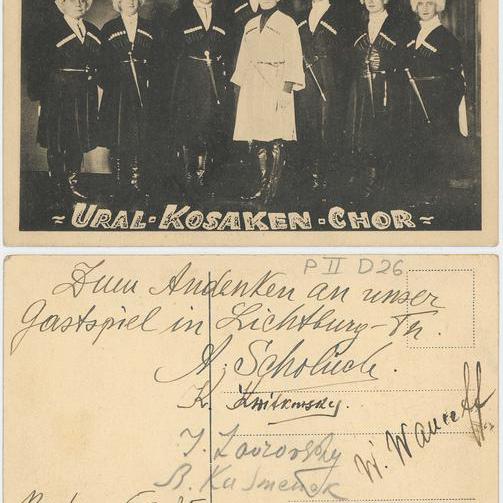 ~ URAL-KOSAKEN-CHOR ~
P II D26
Zum Andenken an unser
Gastspiel in Lichtburg-Th.
A. Scholuch.
K.
W. Waureff
J. Zavrovsky
B. Kusmenok